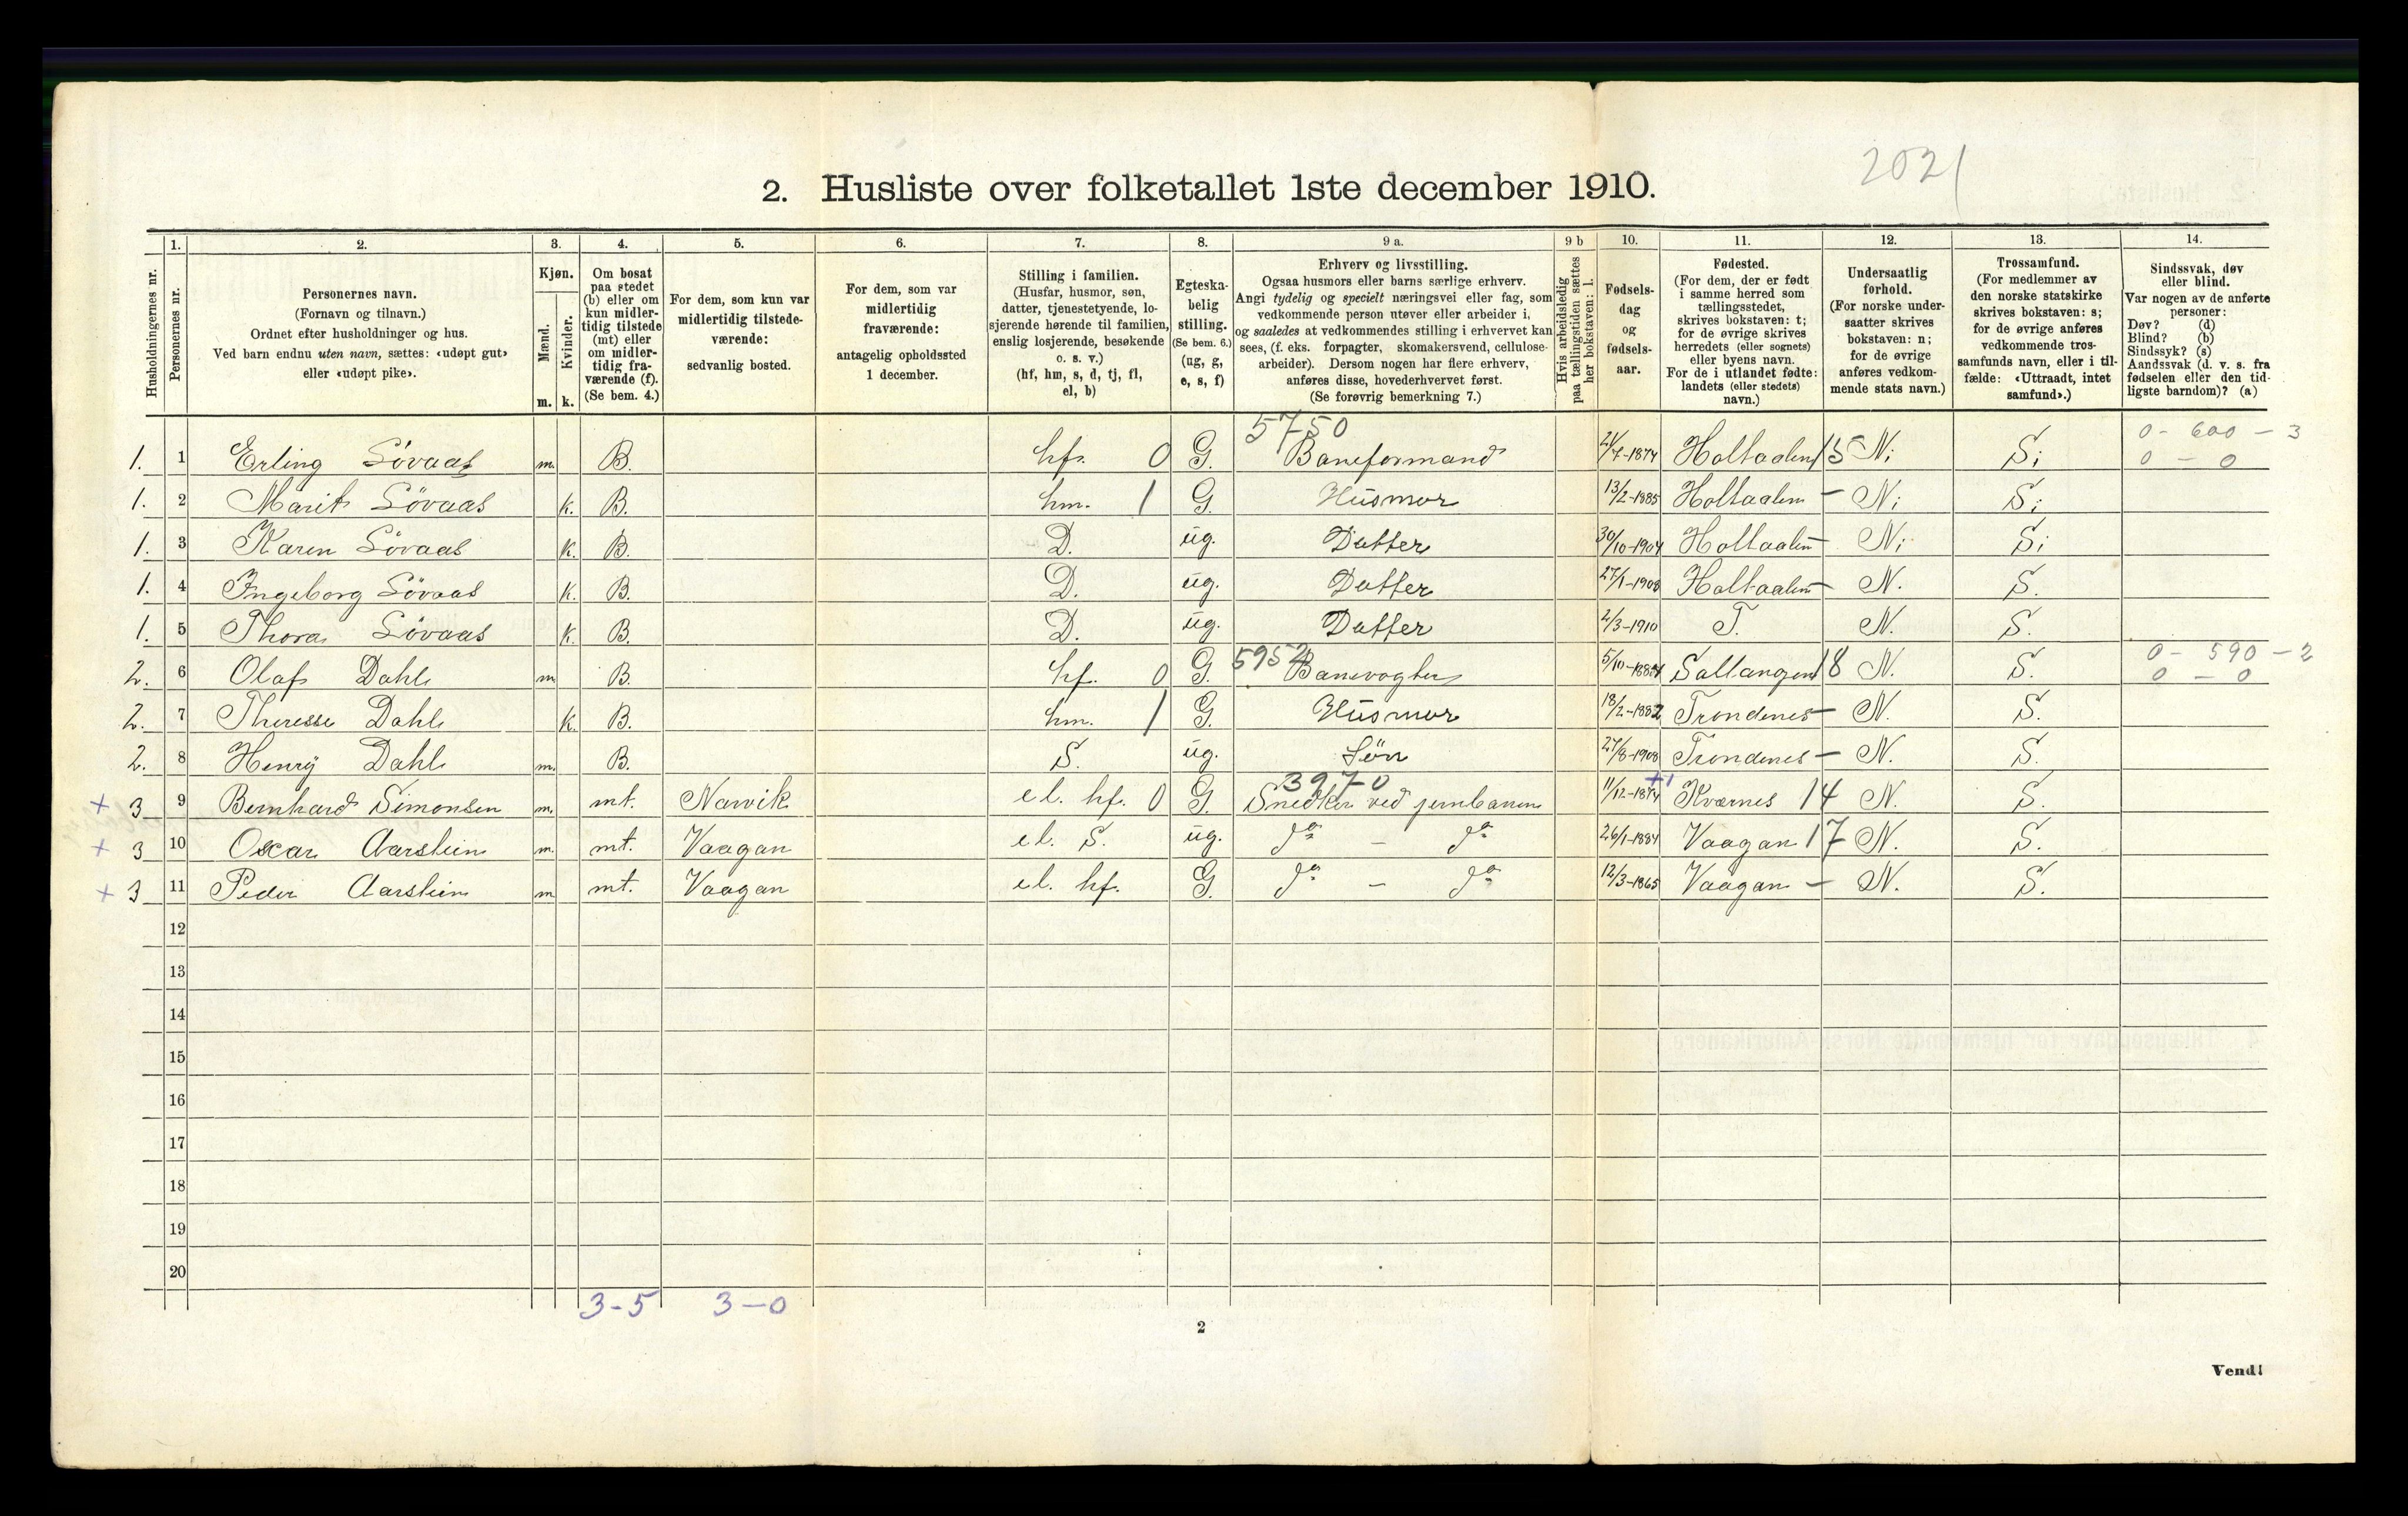 2021
2. Husliste over folketallet 1ste december 1910.
Husholdningernes nr.
1. Personernes nr.
2. Personernes navn.
(Fornavn og tilnavn.)
Ordnet efter husholdninger og hus.
Ved barn endnu uten navn, sættes: «udøpt gut»
eller «udøpt pike».
3. Kjøn.
Mænd. m.
Kvinder. k.
4. Om bosat
paa stedet
(b) eller om
kun midler-
tidig tilstede
(mt) eller
om midler-
tidig fra-
værende (f).
(Se bem. 4.)
5. For dem, som kun var
midlertidig tilstede-
værende:
sedvanlig bosted.
6. For dem, som var
midlertidig
fraværende:
antagelig opholdssted
1 december.
7. Stilling i familien.
(Husfar, husmor, søn,
datter, tjenestetyende, lo-
sjerende hørende til familien,
enslig losjerende, besøkende
o. s. v.)
(hf, hm, s, d, tj, fl,
el, b)
8. Egteska-
belig
stilling.
(Se bem. 6.)
(ug, g,
e, s, f)
9 a. Erhverv og livsstilling.
Ogsaa husmors eller barns særlige erhverv.
Angi tydelig og specielt næringsvei eller fag, som
vedkommende person utøver eller arbeider i,
og saaledes at vedkommendes stilling i erhvervet kan
sees, (f. eks. forpagter, skomakersvend, cellulose-
arbeider). Dersom nogen har flere erhverv,
anføres disse, hovederhvervet først.
(Se forøvrig bemerkning 7.)
9 b Hvis arbeidsledig
paa tællingstiden sættes
her bokstaven: l.
10. Fødsels-
dag
og
fødsels-
aar.
11. Fødested.
(For dem, der er født
i samme herred som
tællingsstedet,
skrives bokstaven: t;
for de øvrige skrives
herredets (eller sognets)
eller byens navn.
For de i utlandet fødte:
landets (eller stedets)
navn.)
12. Undersaatlig
forhold.
(For norske under-
saatter skrives
bokstaven: n;
for de øvrige
anføres vedkom-
mende stats navn.)
13. Trossamfund.
(For medlemmer av
den norske statskirke
skrives bokstaven: s;
for de øvrige anføres
vedkommende tros-
samfunds navn, eller i til-
fælde: «Uttraadt, intet
samfund».)
14. Sindssvak, døv
eller blind.
Var nogen av de anførte
personer:
Døv? (d)
Blind? (b)
Sindssyk? (s)
Aandssvak (d. v. s. fra
fødselen eller den tid-
ligste barndom)? (a)
5750 0 - 600 - 3
1. 1 Erling Sövaas m. B. hf. 0 G. Baneformand 1874 Holtaalen 15 N; S; 0 - 0
1. 2 Marit Sövaas k. B. hm. 1 G. Husmor 13/2-1885 Holtaalen - N; S;
1. 3 Karen Sövaas k. B. D. ug. Datter 30/10-1904 Holtaalen - N; S;
1. 4 Ingeborg Sövaas k. B. D. ug. Datter 27/1-1908 Holtaalen - N. S.
1. 5 Thora Sövaas k. B. D. ug. Datter 2/3-1910 T. N. S.
5952 0 - 590 - 2
2. 6 Olaf Dahl m B. hf. 0 G. Banevogter 5/10 Saltangen 18 N. S. 0 - 0
2. 7 Theresse Dahl k. B. hm. 1 G. Husmor 18/2-1882 Trondenes - N. S.
2. 8 Henry Dahl m. B. S. ug. Sön 27/8-1908 Trondenes - N. S.
3970
+ 3 9 Bernhard Simonsen m. mt. Narvik el. hf. 0 G. Snedker ved jernbanen 11/12-1874 Kværnes 14 N. S.
+ 3 10 Oscar Aarstein m. mt. Vaagan el. S. ug. do - do 26/1-1884 Vaagan 17 N. S.
+ 3 11 Peder Aarstein m mt. Vaagan el. hf. G. do - do 12/3-1865 Vaagan - N. S.
12
13
14
15
16
17
18
19
20
3-5 3-0
2
Vend!